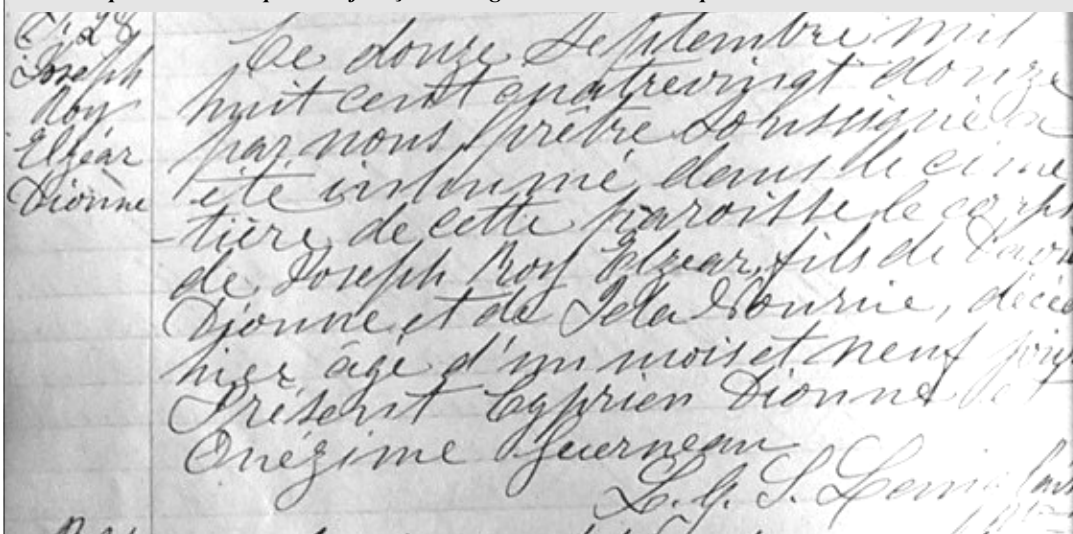 S. 28
Joseph
Roy
Elzéar
Dionne
Ce douze Septembre mil
huit cent quatrevingt douze
par nous prêtre soussigné a
été inhumé dans le cime
-tière de cette paroisse le corps
de Joseph Roy Elzear, fils de
Dionne et de Ida, décé
hier âgé d'un mois et neuf jours
Présent Cyprien Dionne et
Onézime
L. G. S.